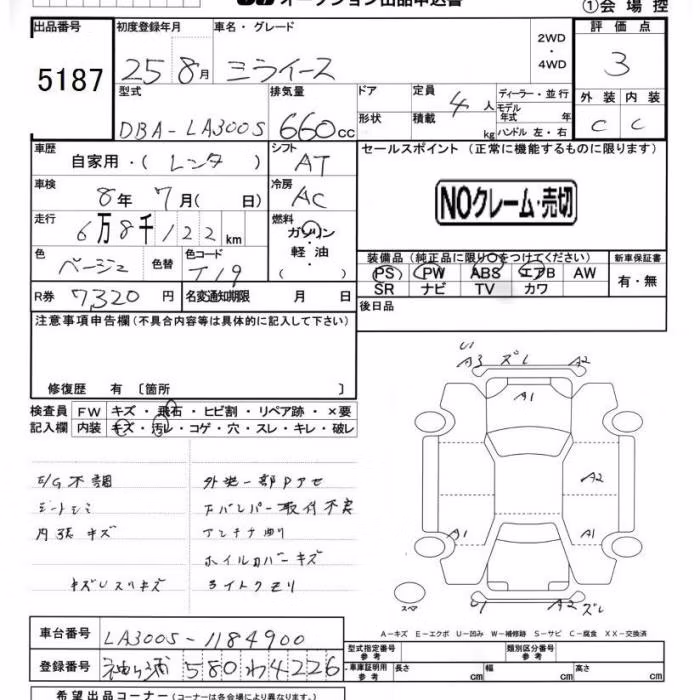 オークション出品申込書
①会場控
出品番号 5187
初度登録年月 25 8月
車名・グレード ミライース
2WD・4WD
評価点 3
型式 DBA-LA300S
排気量 660cc
ドア 形状
定員 4人
積載 kg
ディーラー・並行
モデル年式 年式
ハンドル 左・右
外装 C 内装 C
車歴 自家用・(レンタ)
シフト AT
セールスポイント(正常に機能するものに限ります)
車検 8年 7月( 日)
冷房 AC
NOクレーム・売切
走行 6万8千122km
燃料 ガソリン・軽油( )
色 ベージュ 色替 色コード T19
装備品(純正品に限り○をつけてください)
PS PW ABS エアB AW
SR ナビ TV カワ
新車保証書 有・無
R券 7,320円
名変通知期限 月 日
後日品
注意事項申告欄(不具合内容等は具体的に記入して下さい)
修復歴 有〔箇所 〕
検査員記入欄
FW キズ・飛石・ヒビ割・リペア跡・×要
内装 キズ・汚レ・コゲ・穴・スレ・キレ・破レ
E/G不調 外装一部Pアセ
シートシミ 下バンパー取付不良
内張キズ アンテナ曲り
ホイルカバーキズ
キズUスリキズ ライトクモリ
U1 A3 ズレ A2
A1
A2
A1 A1
スペア U1 A2 ズレ
A-キズ E-エクボ U-凹み W-補修跡 S-サビ C-腐食 XX-交換済
車台番号 LA300S-1184900
登録番号 袖ヶ浦 580 わ 4226
型式指定番号 参考
類別区分番号 参考
車庫証明用 参考 長さ cm 幅 cm 高さ cm
希望出品コーナー(コーナーは各会場により異なります。)